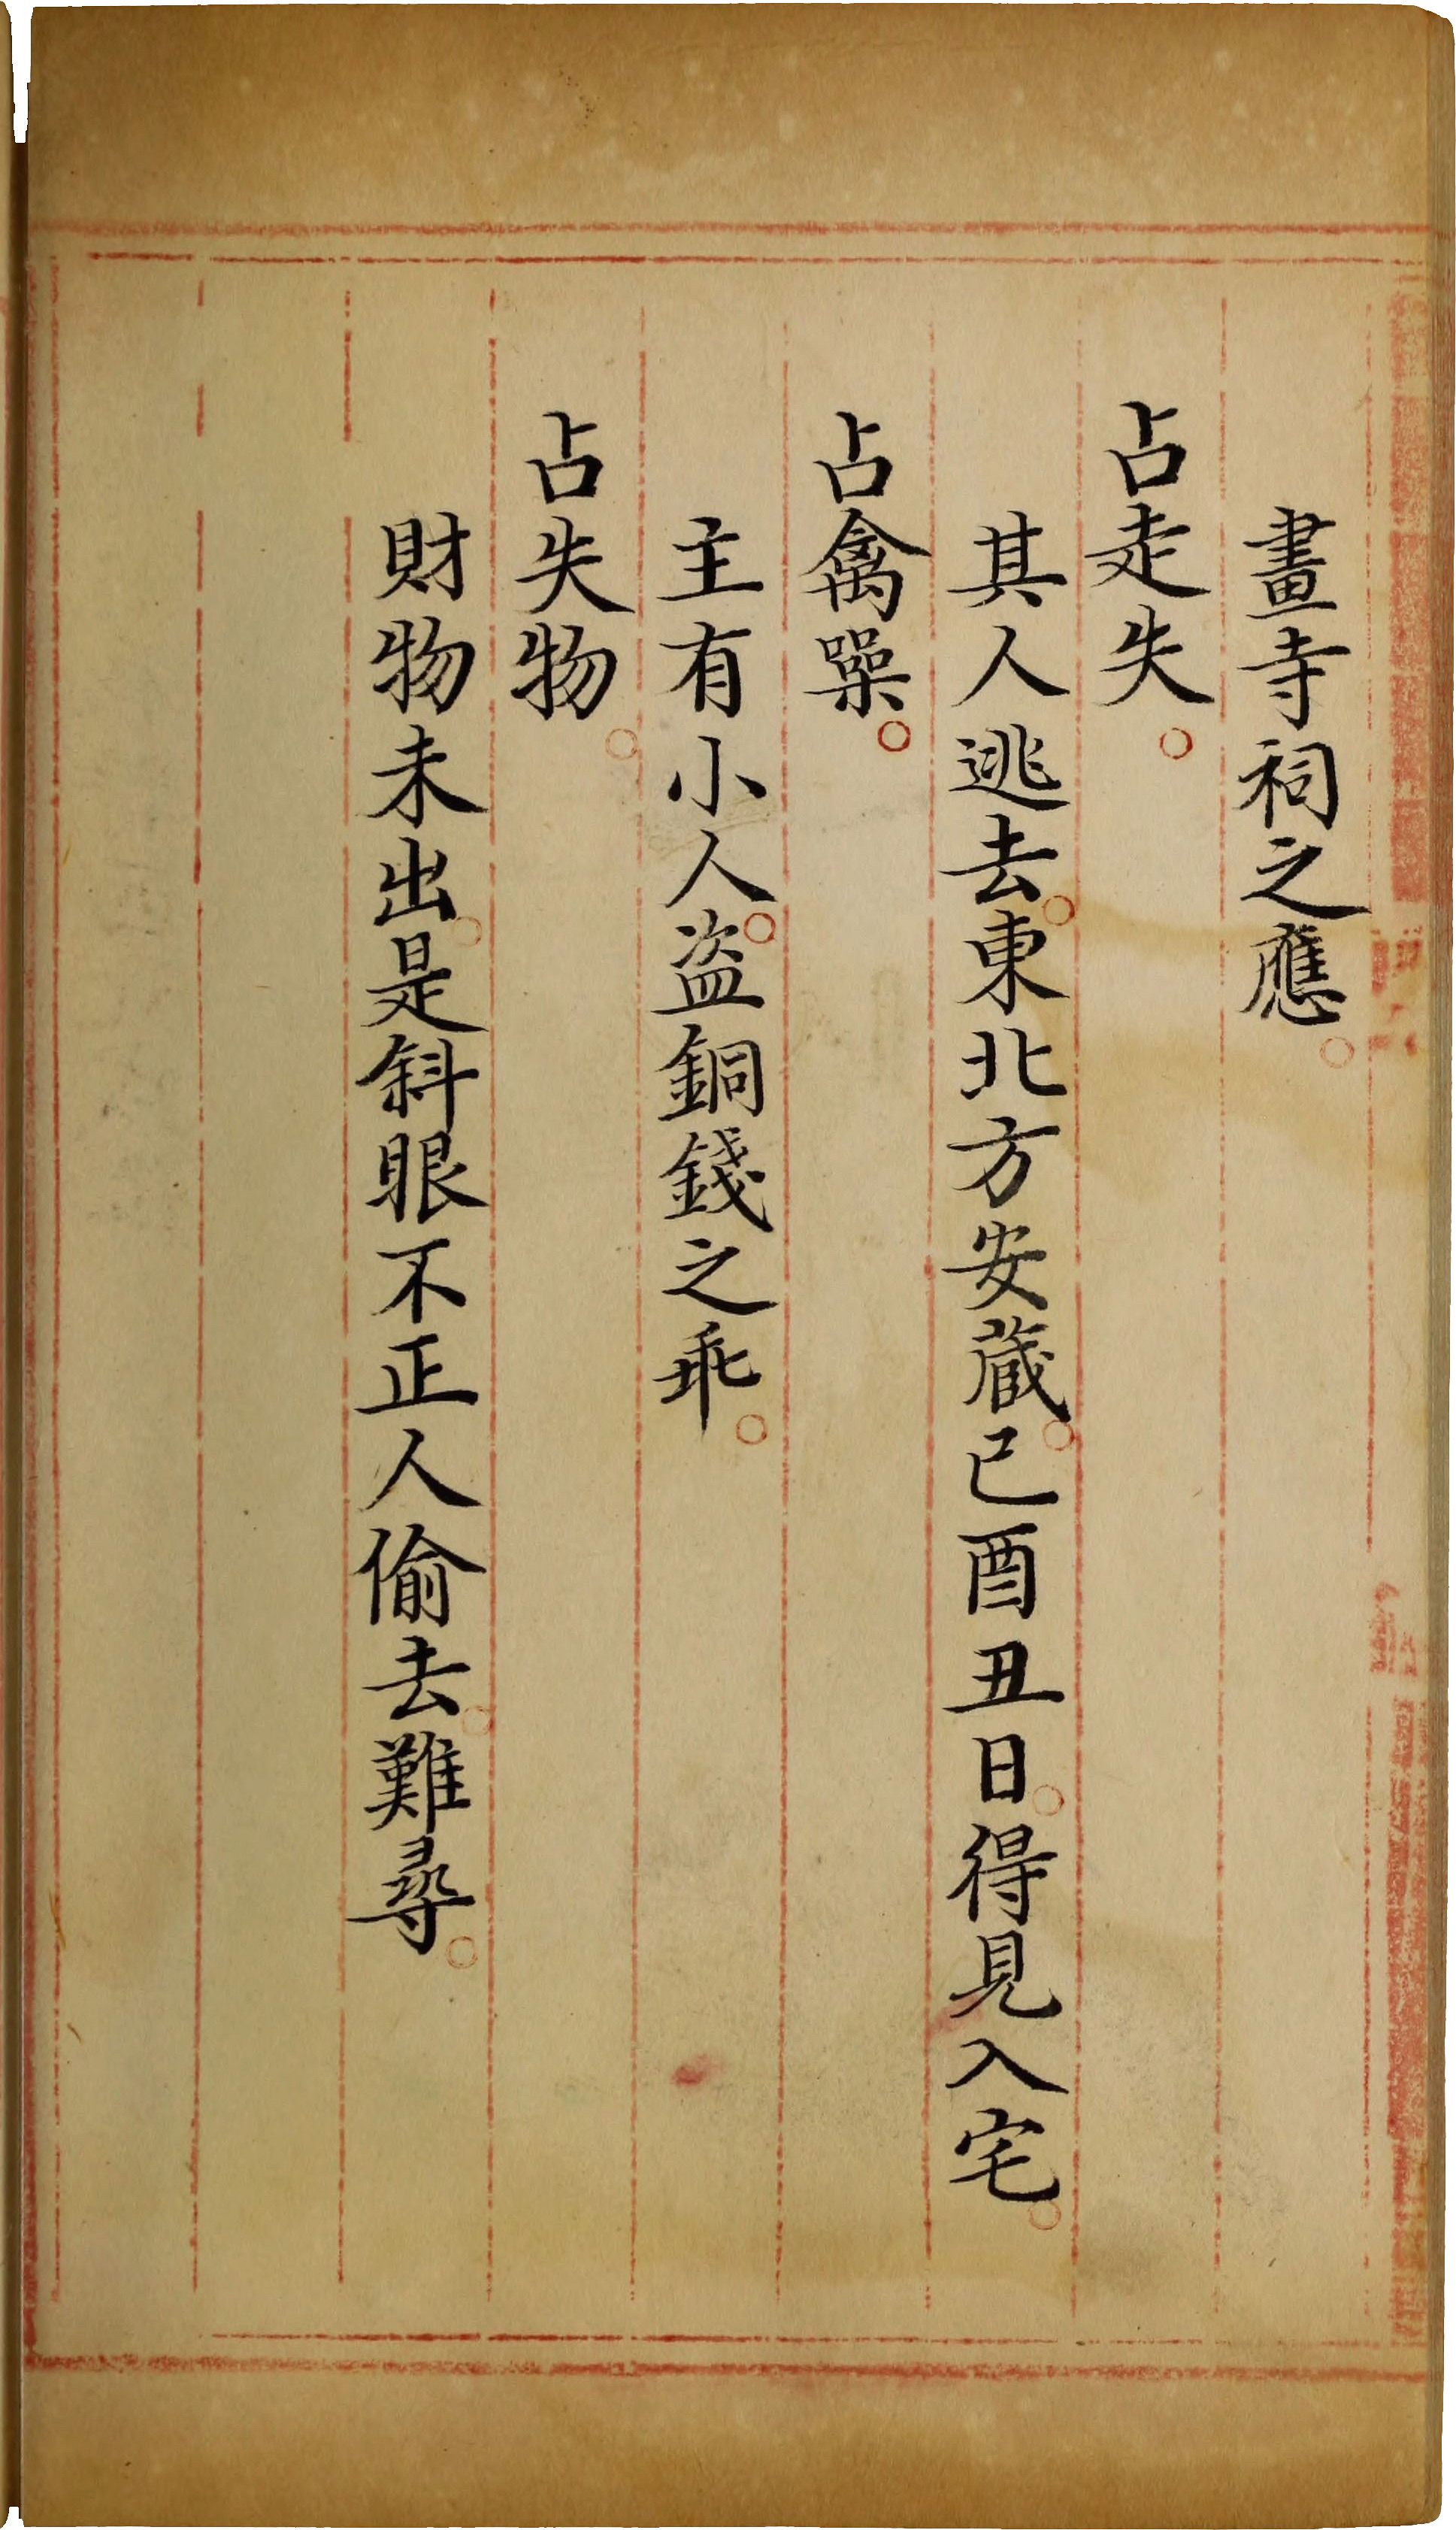 畫寺祠之應。
占走失。
其人逃去。東北方安蔵。巳酉丑日。得見入宅。
占禽噪。
主有小人。盗銅錢之乖。
占失物。
財物未出。是斜眼不正人偷去。難尋。